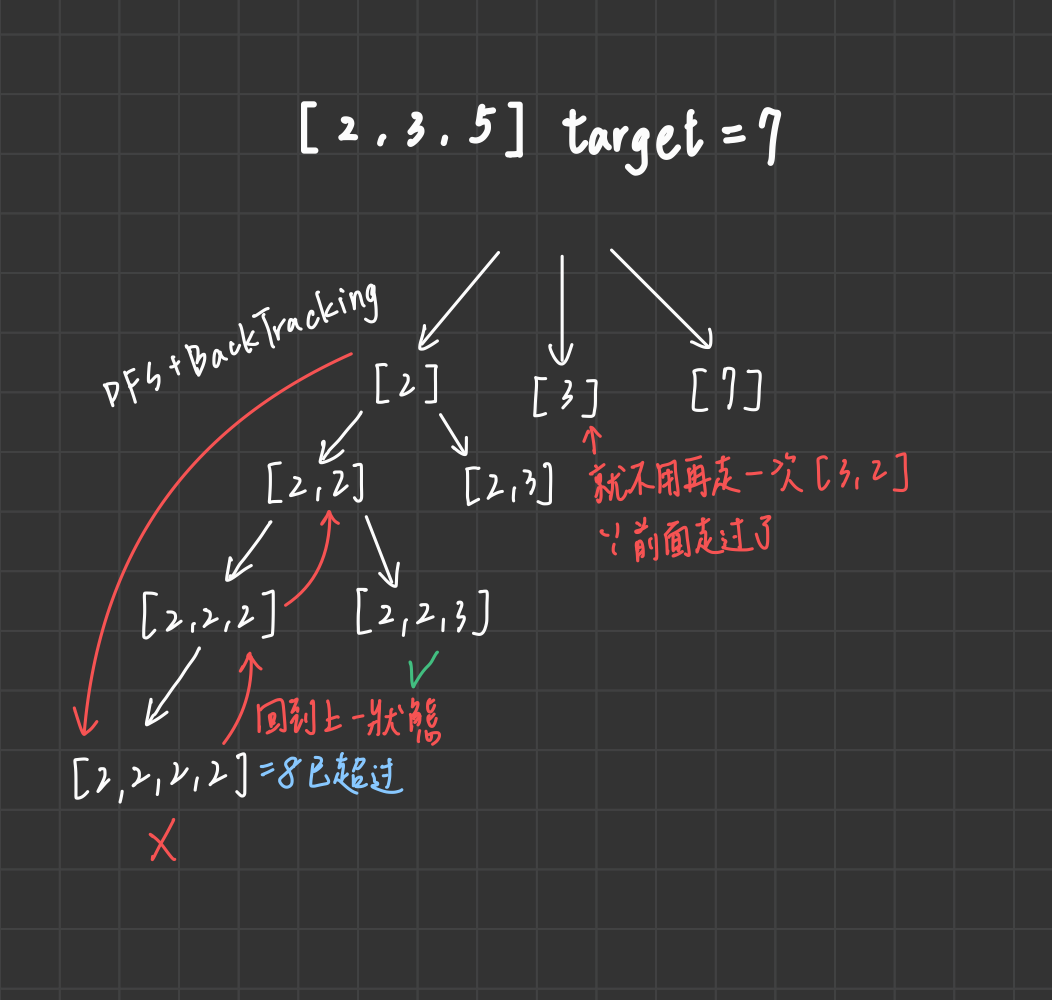 [2,3,5] target=7
DFS+BackTracking
[2] [3] [7]
[2,2] [2,3]
就不用再走一次[3,2]
∵前面走过了
[2,2,2] [2,2,3]
回到上一狀態
[2,2,2,2] =8已超过